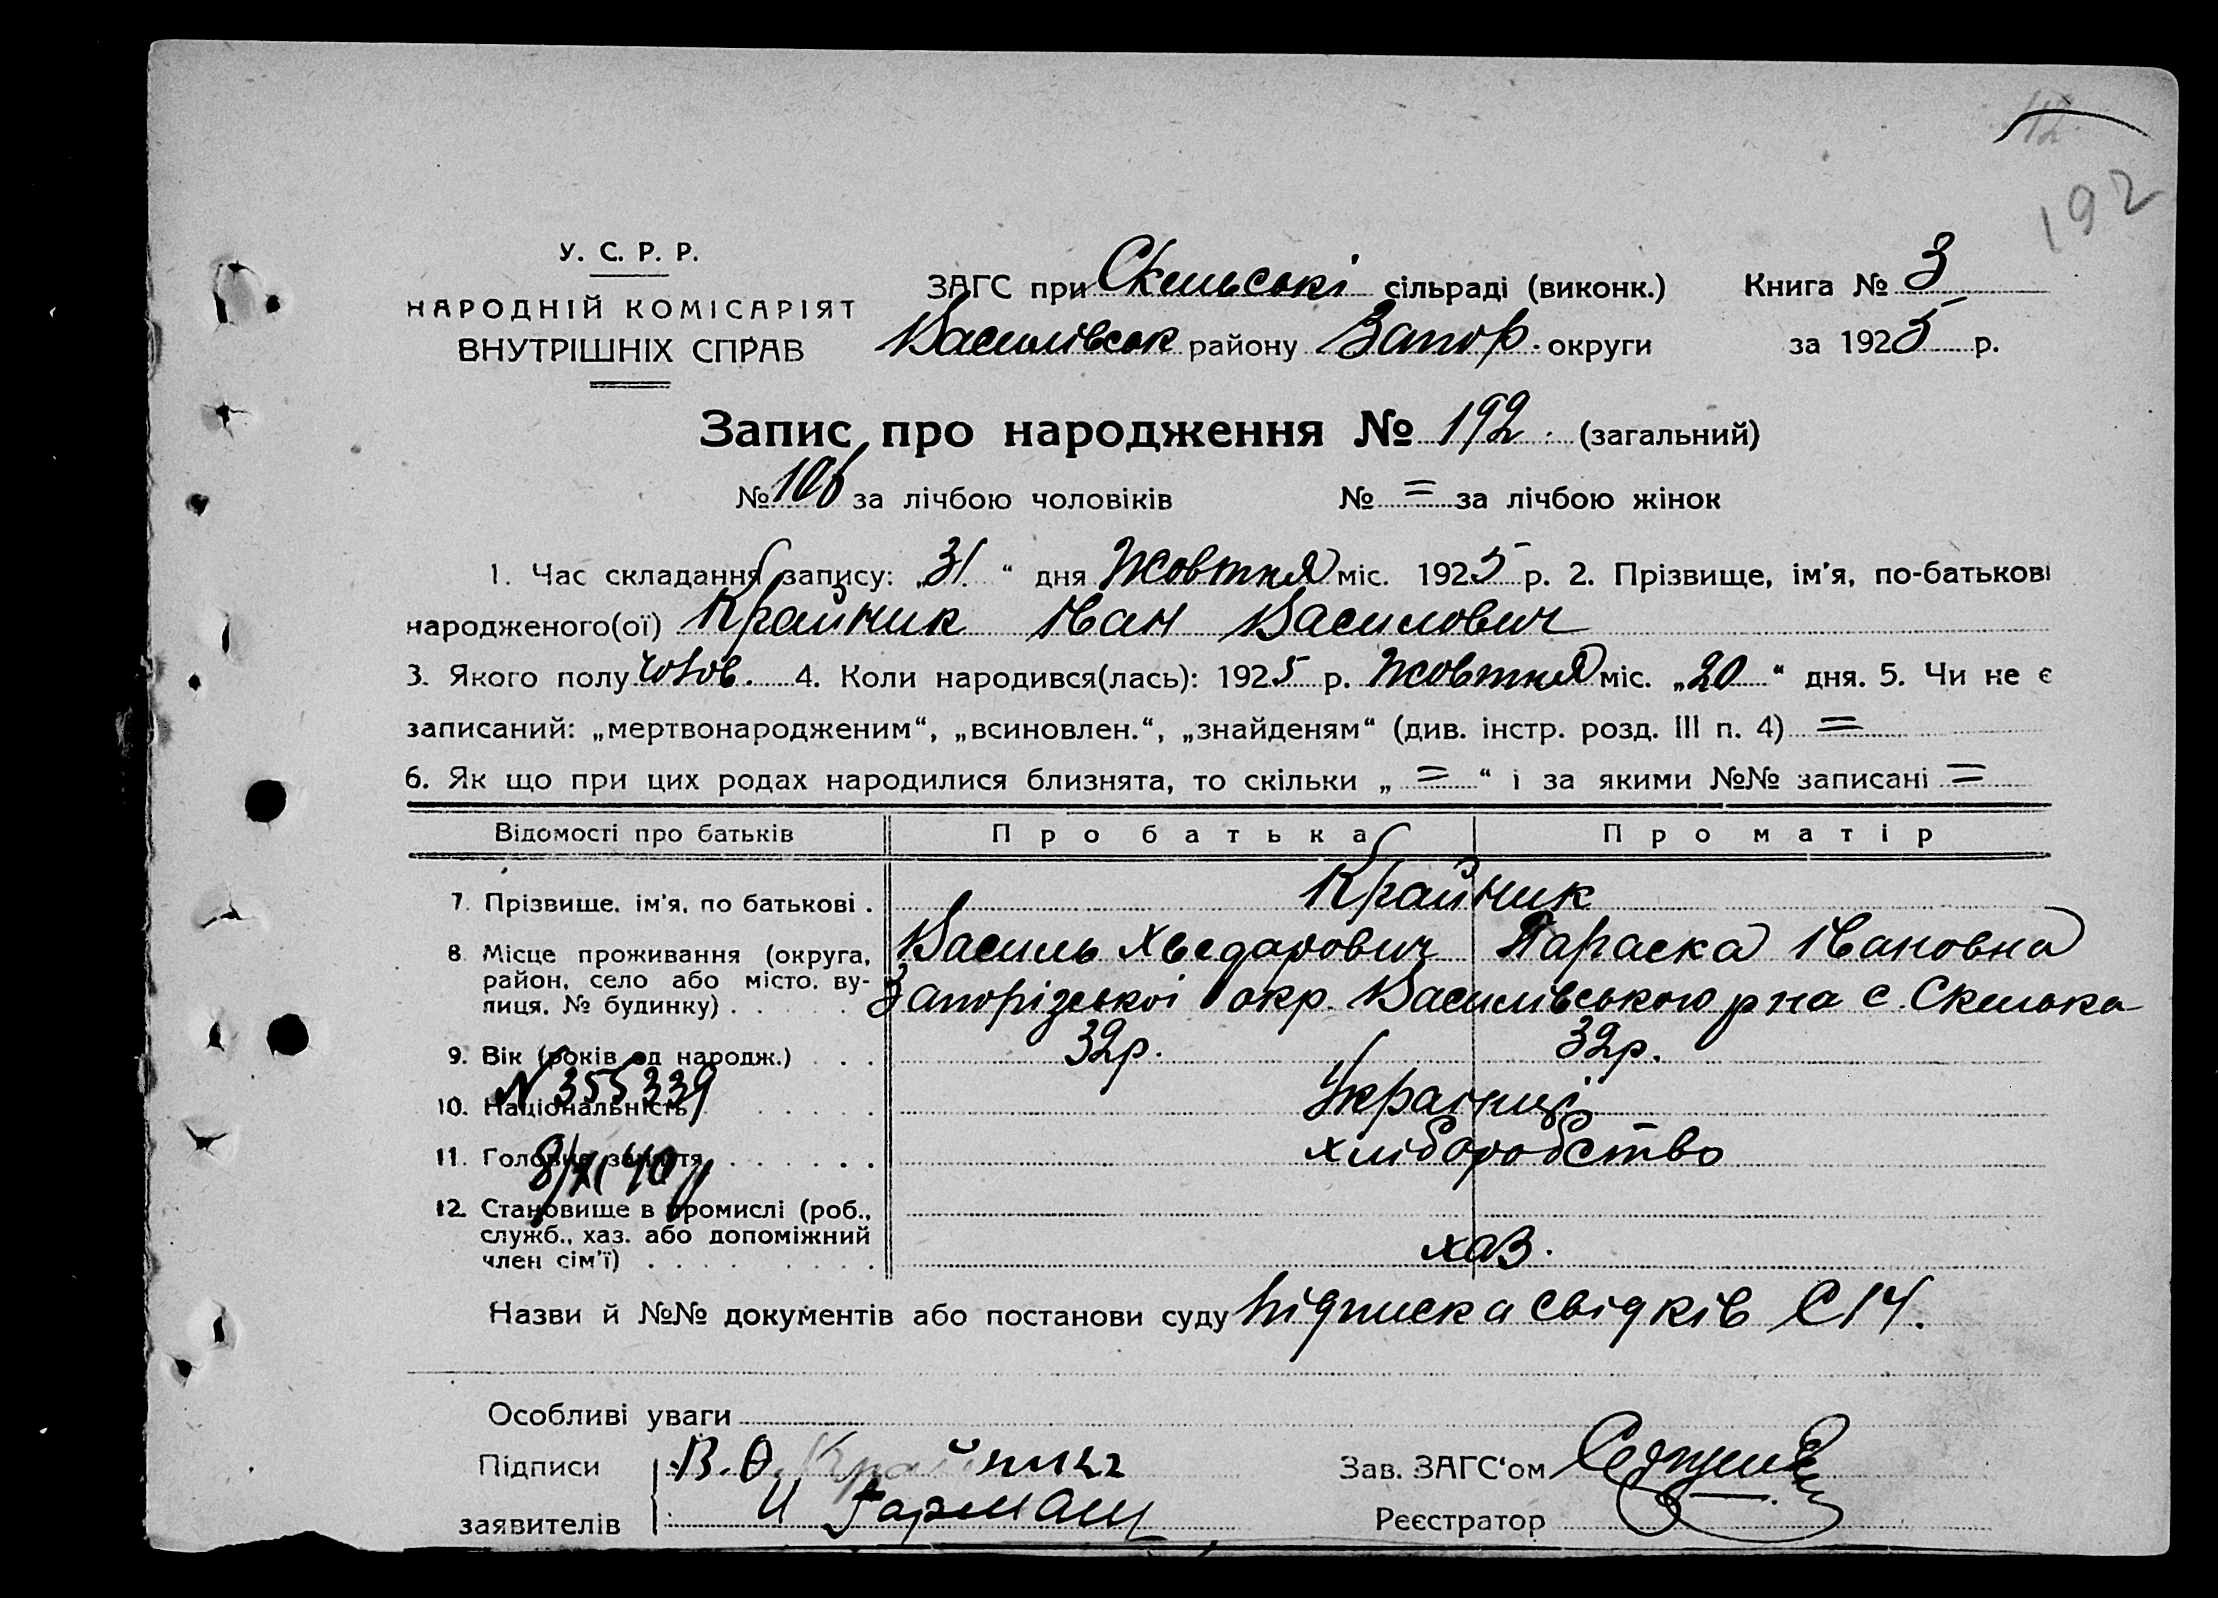 112
192
У. С. Р. Р.
НАРОДНІЙ КОМІСАРІЯТ
ВНУТРІШНІХ СПРАВ
ЗАГС при Скельські сільраді (виконк.) Книга № 3
Василівськ району Запор. округи за 1925 р.
Запис про народження № 192. (загальний)
№ 106 за лічбою чоловіків № = за лічбою жінок
1. Час складання запису: „31“ дня Жовтня міс. 1925 р. 2. Прізвище, ім'я, по-батькові
народженого(ої) Крайник Иван Василович
3. Якого полу чолов. 4. Коли народився(лась): 1925 р. Жовтня міс. „20“ дня. 5. Чи не є
записаний: „мертвонародженим“, „всиновлен.“, „знайденям“ (див. інстр. розд. III п. 4) =
6. Як що при цих родах народилися близнята, то скільки „=“ і за якими №№ записані =
Відомості про батьків Про батька Про матір
7. Прізвище, ім'я, по батькові . Крайник
Василь Хведарович Параска Ивановна
8. Місце проживання (округа, район, село або місто, ву-
лиця, № будинку) . . . . . Запорізської окр. Василівського рна с. Скелька
9. Вік (років од народж.) . . 32р. 32р.
N 355339
10. Національність . . . . . . Українці
11. Головне заняття . . . . . . хліборобство
8/XI 40
12. Становище в промислі (роб.,
служб., хаз. або допоміжний
член сім'ї) . . . . . . . . . хаз.
Назви й №№ документів або постанови суду Підписка свідків С14.
Особливі уваги
Підписи В. Ѳ. Крайник
заявителів И Гармаш
Зав. ЗАГС‘ом
Реєстратор